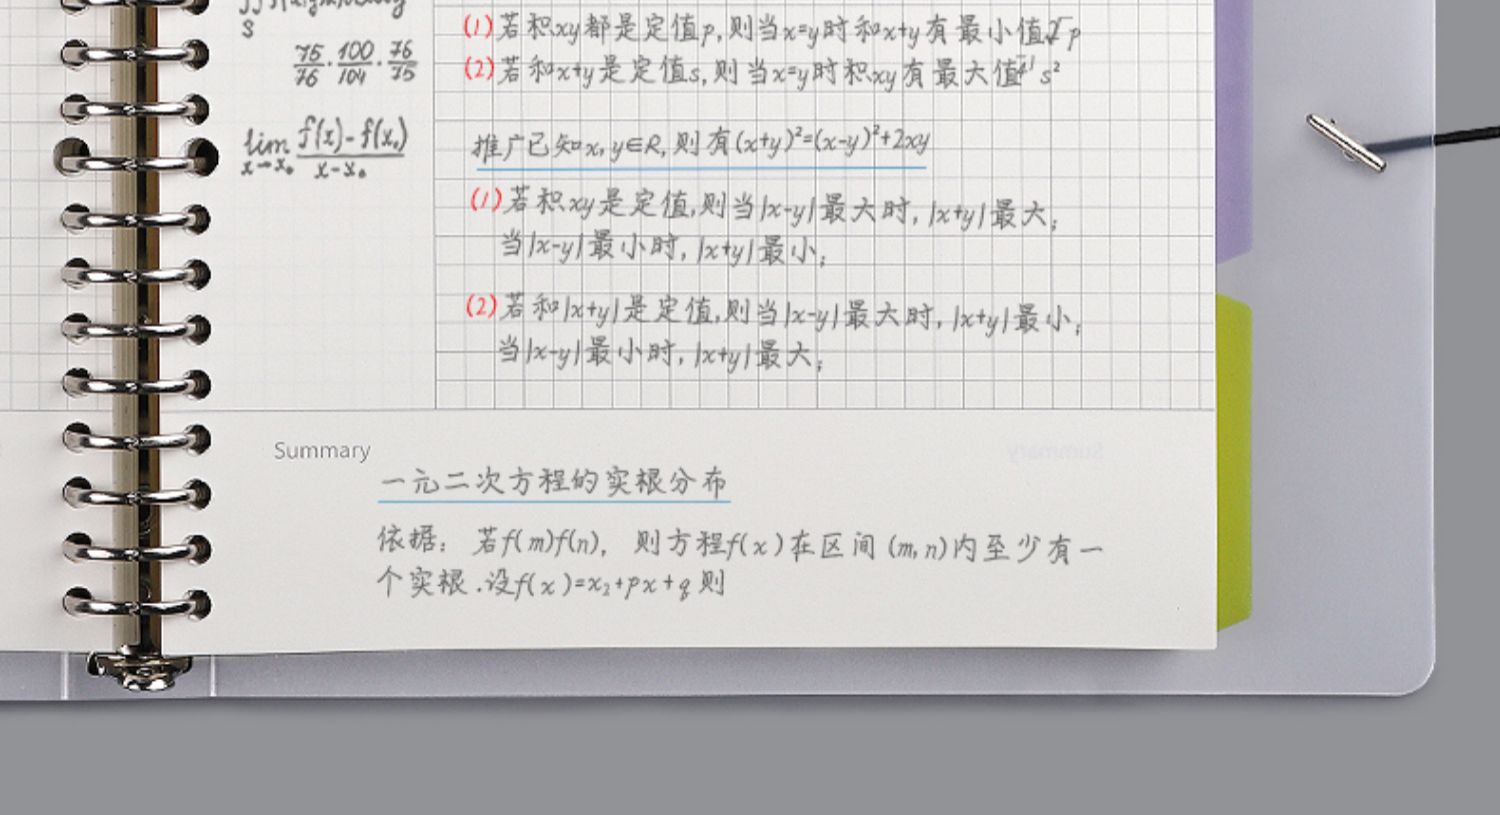 S
75/76 · 100/104 · 76/75
lim x→x₀ f(x)-f(x₀)/x-x₀
(1)若积xy都是定值p,则当x=y时和x+y有最小值2√p
(2)若和x+y是定值s,则当x=y时积xy有最大值 s²
推广已知x,y∈R,则有(x+y)²=(x-y)²+2xy
(1)若积xy是定值,则当|x-y|最大时,|x+y|最大;
当|x-y|最小时,|x+y|最小;
(2)若和|x+y|是定值,则当|x-y|最大时,|x+y|最小;
当|x-y|最小时,|x+y|最大;
Summary
一元二次方程的实根分布
依据: 若f(m)f(n), 则方程f(x)在区间(m,n)内至少有一
个实根.设f(x)=x₂+px+q则